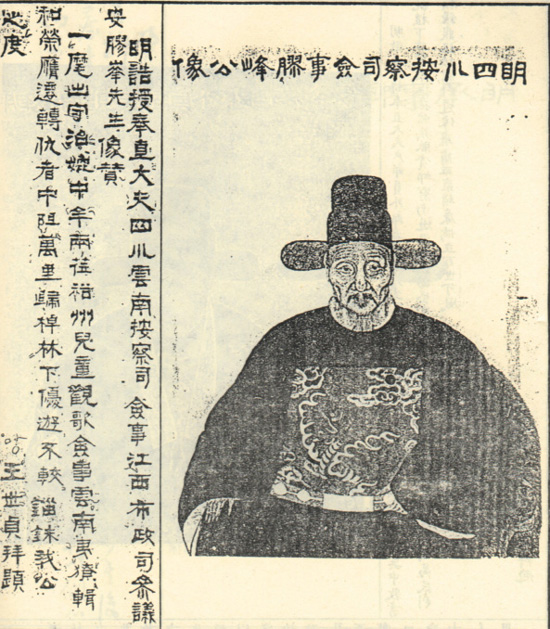 明四川按察司僉事膠峰公像
明誥授奉直大夫四川雲南按察司僉事江西布政司參議
安膠峯先生像贊
一麾出守治媲中牟兩裕州兒童觀歌僉事雲南夷獠輯
和榮膺遷轉仇者中阻萬里歸棹林下優遊不較錙銖我公
之度 王世貞拜題